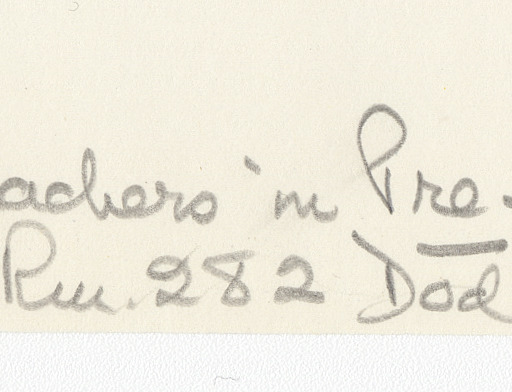 achers in Pre-
Rm. 282 Dod